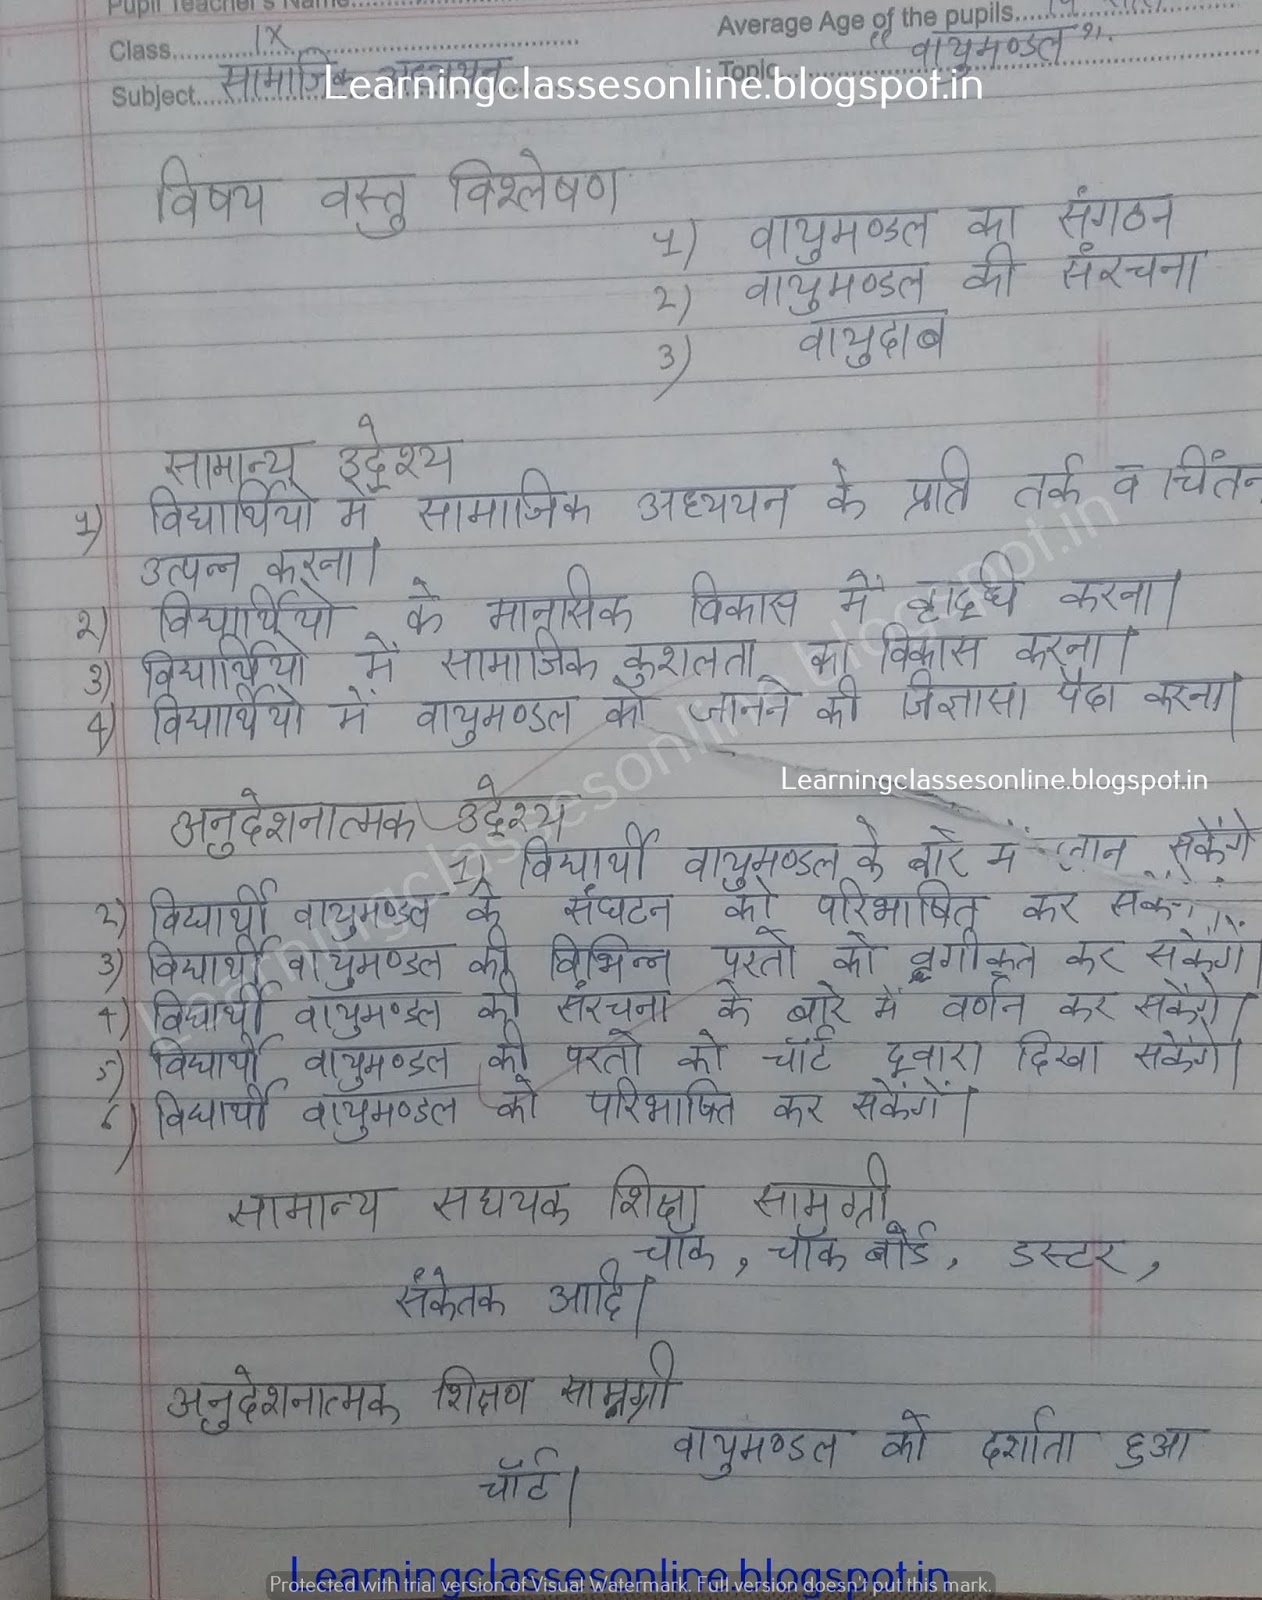 Pupil Teacher's Name
Class IX Average Age of the pupils
Subject सामाजिक अध्ययन Topic "वायुमण्डल"
Learningclassesonline.blogspot.in
विषय वस्तु विश्लेषण
1) वायुमण्डल का संगठन
2) वायुमण्डल की संरचना
3) वायुदाब
सामान्य उद्देश्य
1) विद्यार्थियो में सामाजिक अध्ययन के प्रति तर्क व चिंतन
उत्पन्न करना।
2) विद्यार्थियो के मानसिक विकास में वृद्धि करना।
3) विद्यार्थियो में सामाजिक कुशलता का विकास करना।
4) विद्यार्थियो में वायुमण्डल को जानने की जिज्ञासा पैदा करना।
Learningclassesonline.blogspot.in
अनुदेशनात्मक उद्देश्य
1) विद्यार्थी वायुमण्डल के बारे में जान सकेंगे
2) विद्यार्थी वायुमण्डल के संघटन को परिभाषित कर
3) विद्यार्थी वायुमण्डल की विभिन्न परतो को वर्गीकृत कर सकेंगे।
4) विद्यार्थी वायुमण्डल की संरचना के बारे में वर्णन कर सकेंगे।
5) विद्यार्थी वायुमण्डल की परतो को चॉर्ट द्वारा दिखा सकेंगे।
6) विद्यार्थी वायुमण्डल को परिभाषित कर सकेंगें।
सामान्य सघयक शिक्षा सामग्री
चॉक, चॉक बोर्ड, डस्टर,
संकेतक आदि।
अनुदेशनात्मक शिक्षण सामग्री
वायुमण्डल को दर्शाता हुआ
चॉर्ट।
Learningclassesonline.blogspot.in
Protected with trial version of Visual Watermark. Full version doesn't put this mark.